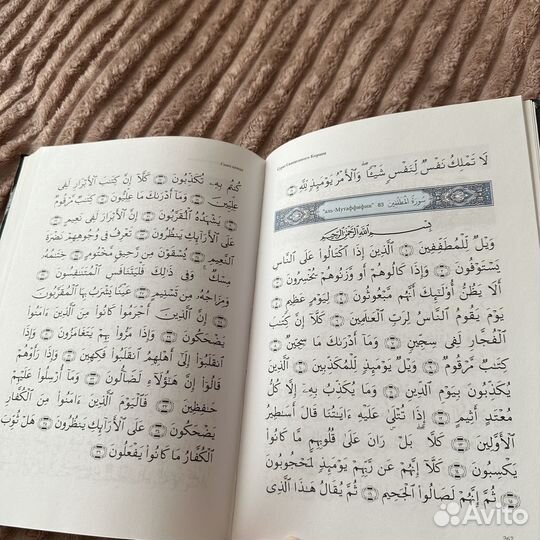 Суры Священного Корана
لَا تَمْلِكُ نَفْسٌ لِّنَفْسٍ شَيْـًٔا ۖ وَٱلْأَمْرُ يَوْمَئِذٍ لِّلَّهِ ﴿١٩﴾
"аль-Мутаффифин" 83 سُورَةُ ٱلْمُطَفِّفِينَ
بِسْمِ ٱللَّهِ ٱلرَّحْمَٰنِ ٱلرَّحِيمِ
وَيْلٌ لِّلْمُطَفِّفِينَ ﴿١﴾ ٱلَّذِينَ إِذَا ٱكْتَالُوا۟ عَلَى ٱلنَّاسِ
يَسْتَوْفُونَ ﴿٢﴾ وَإِذَا كَالُوهُمْ أَو وَّزَنُوهُمْ يُخْسِرُونَ ﴿٣﴾
أَلَا يَظُنُّ أُو۟لَٰٓئِكَ أَنَّهُم مَّبْعُوثُونَ ﴿٤﴾ لِيَوْمٍ عَظِيمٍ ﴿٥﴾
يَوْمَ يَقُومُ ٱلنَّاسُ لِرَبِّ ٱلْعَٰلَمِينَ ﴿٦﴾ كَلَّآ إِنَّ كِتَٰبَ
ٱلْفُجَّارِ لَفِى سِجِّينٍ ﴿٧﴾ وَمَآ أَدْرَىٰكَ مَا سِجِّينٌ ﴿٨﴾
كِتَٰبٌ مَّرْقُومٌ ﴿٩﴾ وَيْلٌ يَوْمَئِذٍ لِّلْمُكَذِّبِينَ ﴿١٠﴾ ٱلَّذِينَ
يُكَذِّبُونَ بِيَوْمِ ٱلدِّينِ ﴿١١﴾ وَمَا يُكَذِّبُ بِهِۦٓ إِلَّا كُلُّ
مُعْتَدٍ أَثِيمٍ ﴿١٢﴾ إِذَا تُتْلَىٰ عَلَيْهِ ءَايَٰتُنَا قَالَ أَسَٰطِيرُ
ٱلْأَوَّلِينَ ﴿١٣﴾ كَلَّا ۖ بَلْ ۜ رَانَ عَلَىٰ قُلُوبِهِم مَّا كَانُوا۟
يَكْسِبُونَ ﴿١٤﴾ كَلَّآ إِنَّهُمْ عَن رَّبِّهِمْ يَوْمَئِذٍ لَّمَحْجُوبُونَ
﴿١٥﴾ ثُمَّ إِنَّهُمْ لَصَالُوا۟ ٱلْجَحِيمِ ﴿١٦﴾ ثُمَّ يُقَالُ هَٰذَا ٱلَّذِى
262
كُنتُم بِهِۦ تُكَذِّبُونَ ﴿١٧﴾ كَلَّآ إِنَّ كِتَٰبَ ٱلْأَبْرَارِ لَفِى
عِلِّيِّينَ ﴿١٨﴾ وَمَآ أَدْرَىٰكَ مَا عِلِّيُّونَ ﴿١٩﴾ كِتَٰبٌ مَّرْقُومٌ
﴿٢٠﴾ يَشْهَدُهُ ٱلْمُقَرَّبُونَ ﴿٢١﴾ إِنَّ ٱلْأَبْرَارَ لَفِى نَعِيمٍ ﴿٢٢﴾
عَلَى ٱلْأَرَآئِكِ يَنظُرُونَ ﴿٢٣﴾ تَعْرِفُ فِى وُجُوهِهِمْ نَضْرَةَ
ٱلنَّعِيمِ ﴿٢٤﴾ يُسْقَوْنَ مِن رَّحِيقٍ مَّخْتُومٍ ﴿٢٥﴾ خِتَٰمُهُۥ
مِسْكٌ ۚ وَفِى ذَٰلِكَ فَلْيَتَنَافَسِ ٱلْمُتَنَٰفِسُونَ ﴿٢٦﴾
وَمِزَاجُهُۥ مِن تَسْنِيمٍ ﴿٢٧﴾ عَيْنًا يَشْرَبُ بِهَا ٱلْمُقَرَّبُونَ
﴿٢٨﴾ إِنَّ ٱلَّذِينَ أَجْرَمُوا۟ كَانُوا۟ مِنَ ٱلَّذِينَ ءَامَنُوا۟
يَضْحَكُونَ ﴿٢٩﴾ وَإِذَا مَرُّوا۟ بِهِمْ يَتَغَامَزُونَ ﴿٣٠﴾ وَإِذَا
ٱنقَلَبُوٓا۟ إِلَىٰٓ أَهْلِهِمُ ٱنقَلَبُوا۟ فَكِهِينَ ﴿٣١﴾ وَإِذَا رَأَوْهُمْ
قَالُوٓا۟ إِنَّ هَٰٓؤُلَآءِ لَضَآلُّونَ ﴿٣٢﴾ وَمَآ أُرْسِلُوا۟ عَلَيْهِمْ
حَٰفِظِينَ ﴿٣٣﴾ فَٱلْيَوْمَ ٱلَّذِينَ ءَامَنُوا۟ مِنَ ٱلْكُفَّارِ
يَضْحَكُونَ ﴿٣٤﴾ عَلَى ٱلْأَرَآئِكِ يَنظُرُونَ ﴿٣٥﴾ هَلْ ثُوِّبَ
ٱلْكُفَّارُ مَا كَانُوا۟ يَفْعَلُونَ ﴿٣٦﴾
Avito